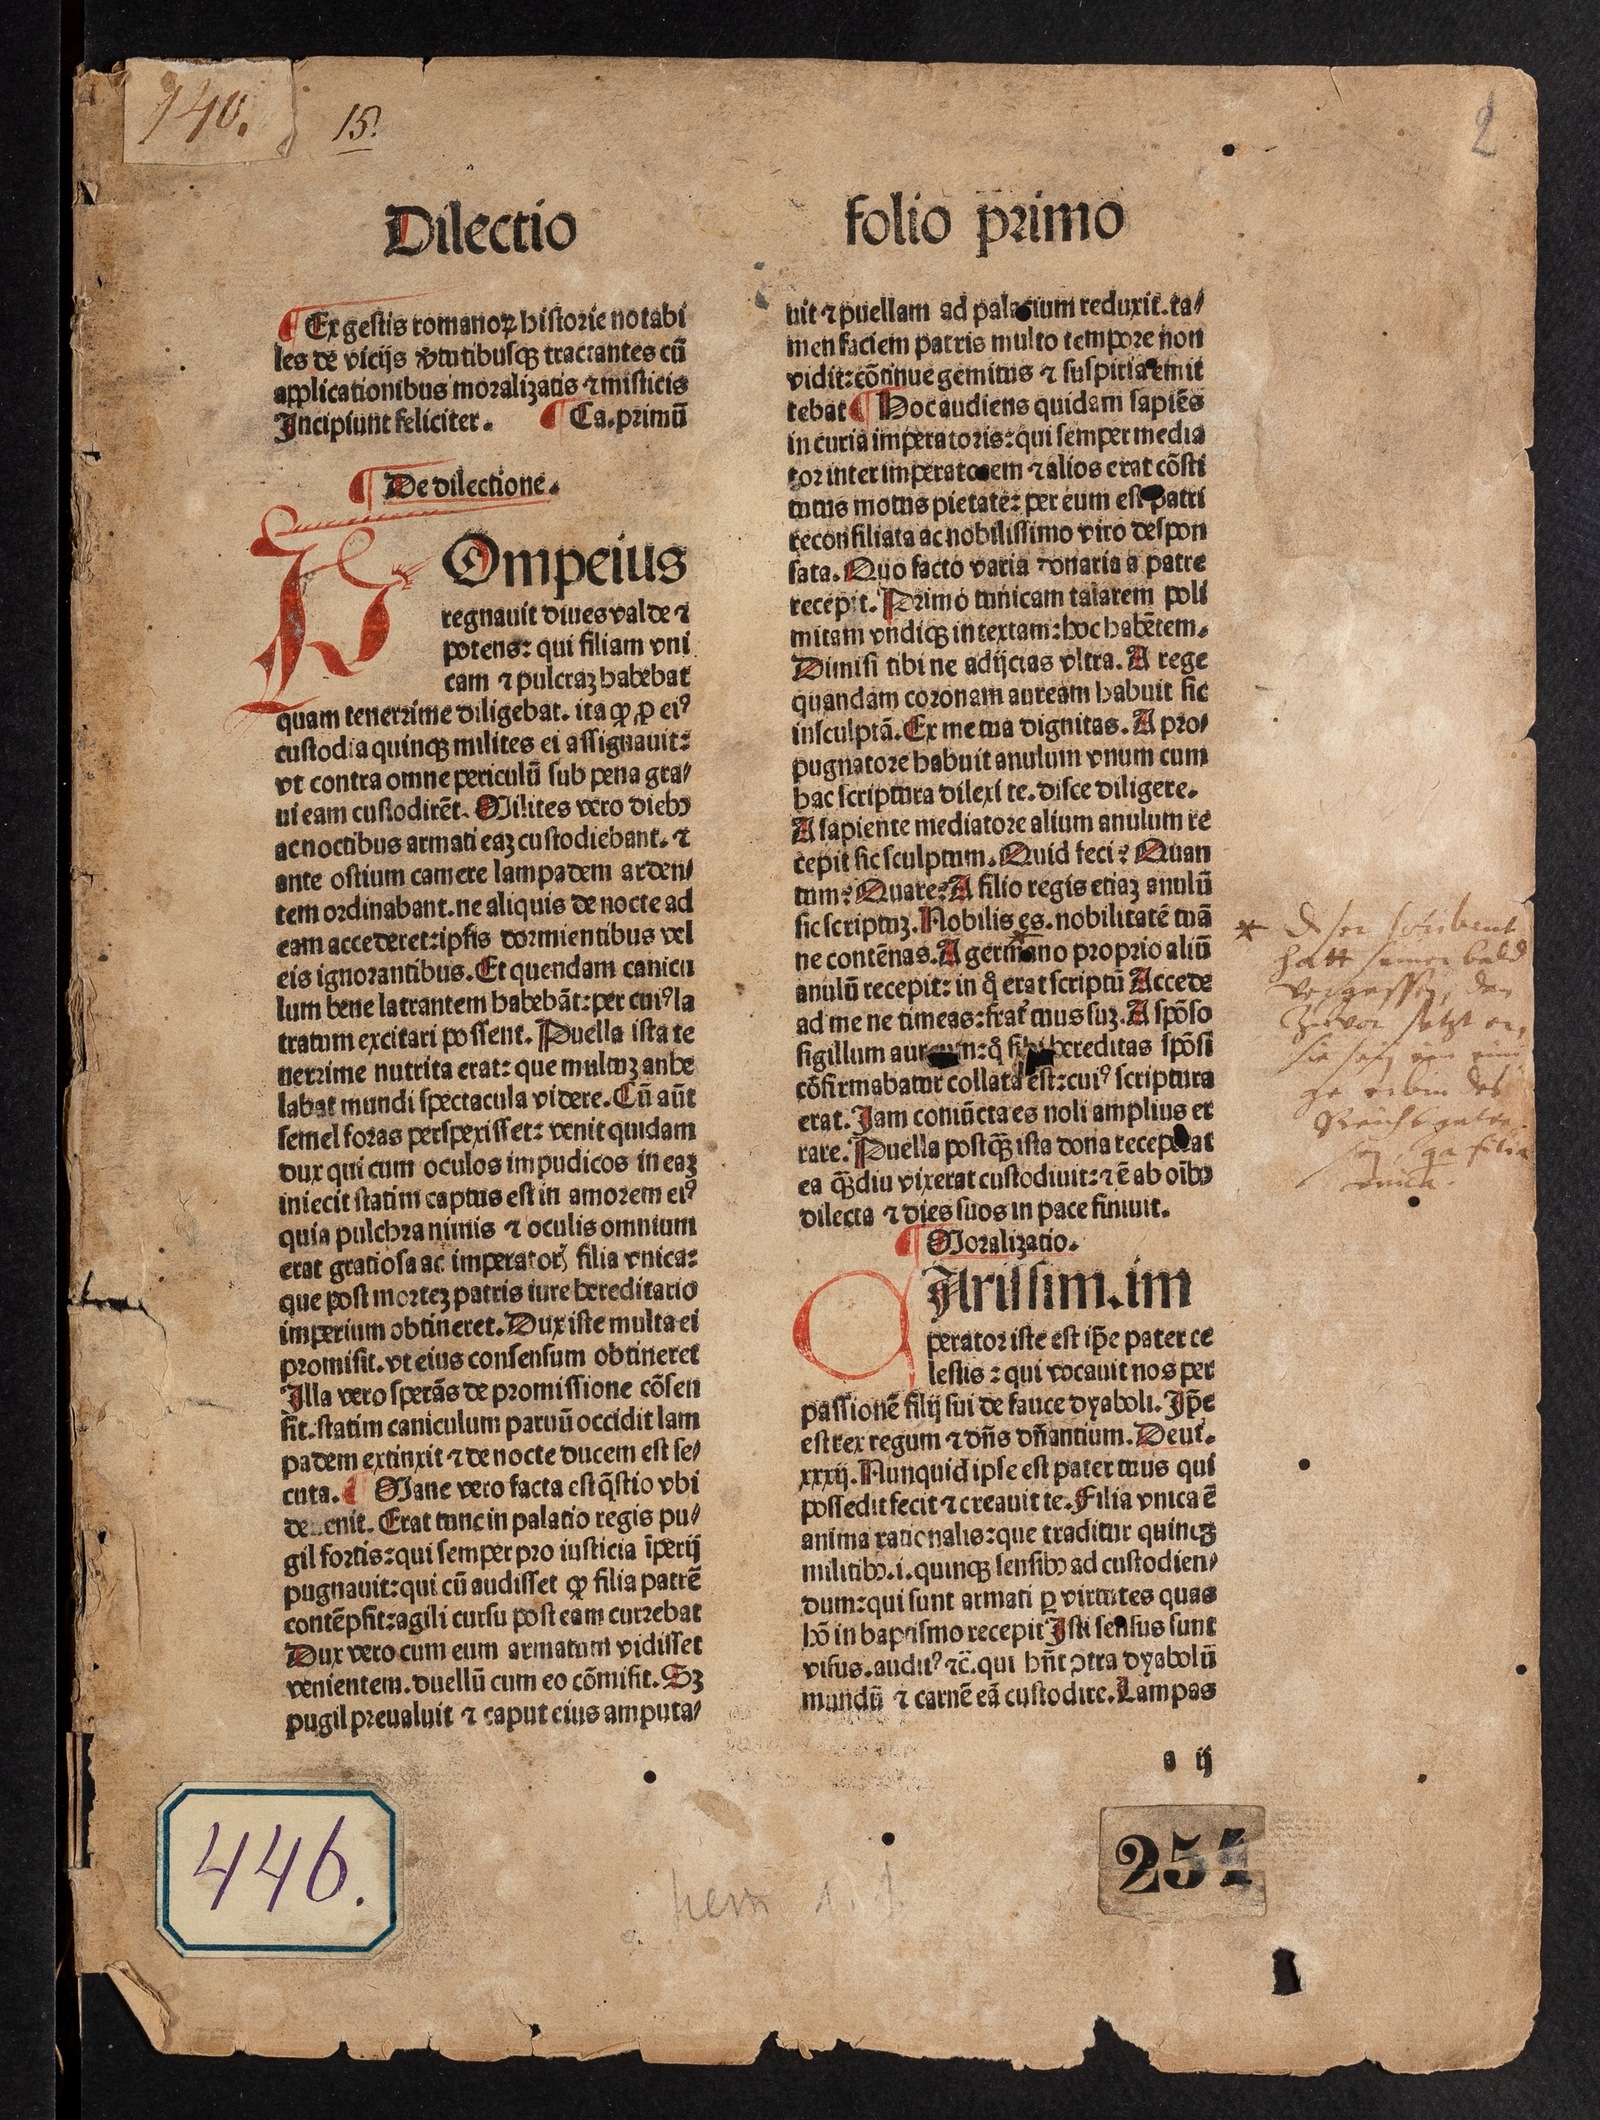 140.
15.
2
Dilectio
folio p̄rimo
¶ Ex gestis romanoꝝ historie notabi
les de vicijs v̄tutibusqꝫ tractantes cū
applicationibus moralizatis ⁊ misticis
Incipiunt feliciter. ¶ Ca. primū
¶ De dilectione.
POmpeius
regnauit diues valde ⁊
potens: qui filiam vni
cam ⁊ pulcraꝫ habebat
quam tenerrime diligebat. ita ꝙ ꝓ eiꝰ
custodia quinqꝫ milites ei assignauit:
vt contra omne periculū sub pena gra/
ui eam custodirēt. Milites vero diebꝰ
ac noctibus armati eaꝫ custodiebant. ⁊
ante ostium camere lampadem arden/
tem ordinabant. ne aliquis de nocte ad
eam accederet: ipsis dormientibus vel
eis ignorantibus. Et quendam canicu
lum bene latrantem habebāt: per cuiꝰ la
tratum excitari possent. Puella ista te
nerrime nutrita erat: que multuꝫ anhe
labat mundi spectacula videre. Cū aūt
semel foras perspexisset: venit quidam
dux qui cum oculos impudicos in eaꝫ
iniecit statim captus est in amorem eiꝰ
quia pulchra nimis ⁊ oculis omnium
erat gratiosa ac imperatorꝭ filia vnica:
que post morteꝫ patris iure hereditario
imperium obtineret. Dux iste multa ei
promisit. vt eius consensum obtineret
Illa vero sperās de promissione cōsen
sit. statim caniculum paruū occidit lam
padem extinxit ⁊ de nocte ducem est se/
cuta. ¶ Mane vero facta est q̄stio vbi
deuenit. Erat tunc in palatio regis pu/
gil fortis: qui semper pro iusticia īperij
pugnauit: qui cū audisset ꝙ filia patrē
contēpsit: agili cursu post eam currebat
Dux vero cum eum armatum vidisset
venientem. duellū cum eo cōmisit. Sꝫ
pugil preualuit ⁊ caput eius amputa/
uit ⁊ puellam ad palatium reduxit. ta/
men faciem patris multo tempore non
vidit: cōtinue gemitus ⁊ suspiria emit
tebat ¶ Hoc audiens quidam sapiēs
in curia imperatoris: qui semper media
tor inter imperatorem ⁊ alios erat cōsti
tutus motus pietate: per eum est patri
reconsiliata ac nobilissimo viro despon
sata. Quo facto varia donaria a patre
recepit. Primo tunicam talarem poli
mitam vndiqꝫ intextam: hoc habētem.
Dimisi tibi ne adijcias vltra. A rege
quandam coronam auream habuit sic
insculptā. Ex me tua dignitas. A pro/
pugnatore habuit anulum vnum cum
hac scriptura dilexi te. disce diligere.
A sapiente mediatore alium anulum re
cepit sic sculptum. Quid feci? Quan
tum? Quare? A filio regis etiaꝫ anulū
sic scriptuꝫ. Nobilis es. nobilitatē tuā
ne contēnas. A germano proprio aliū
anulū recepit: in q̊ erat scriptū Accede
ad me ne timeas: frat̄ tuus suꝫ. A spōso
sigillum aureum: q̊ sibi hereditas spōsi
cōfirmabatur collata est: cuiꝰ scriptura
erat. Iam coniūcta es noli amplius er
rare. Puella postqꝫ ista dona receperat
ea qꝫdiu vixerat custodiuit: ⁊ ē ab oībꝰ
dilecta ⁊ dies suos in pace finiuit.
¶ Moralizatio.
CArissim. im
perator iste est ip̄e pater ce
lestis: qui vocauit nos per
passionē filij sui de fauce dyaboli. Ip̄e
est rex regum ⁊ dn̄s dn̄antium. Deut̄.
xxxij. Nunquid ipse est pater tuus qui
possedit fecit ⁊ creauit te. Filia vnica ē
anima rationalis: que traditur quinqꝫ
militibꝰ. i. quinqꝫ sensibꝰ ad custodien/
dum: qui sunt armati ꝑ virtutes quas
hō in baptismo recepit Isti sensus sunt
visus. auditꝰ ⁊c̄. qui hn̄t ↄtra dyabolū
mundū ⁊ carnē eā custodire. Lampas
a ij
*
hatt seiner bald
vergessen, der
zuvor setzt er,
filia
vnica.
446.
254